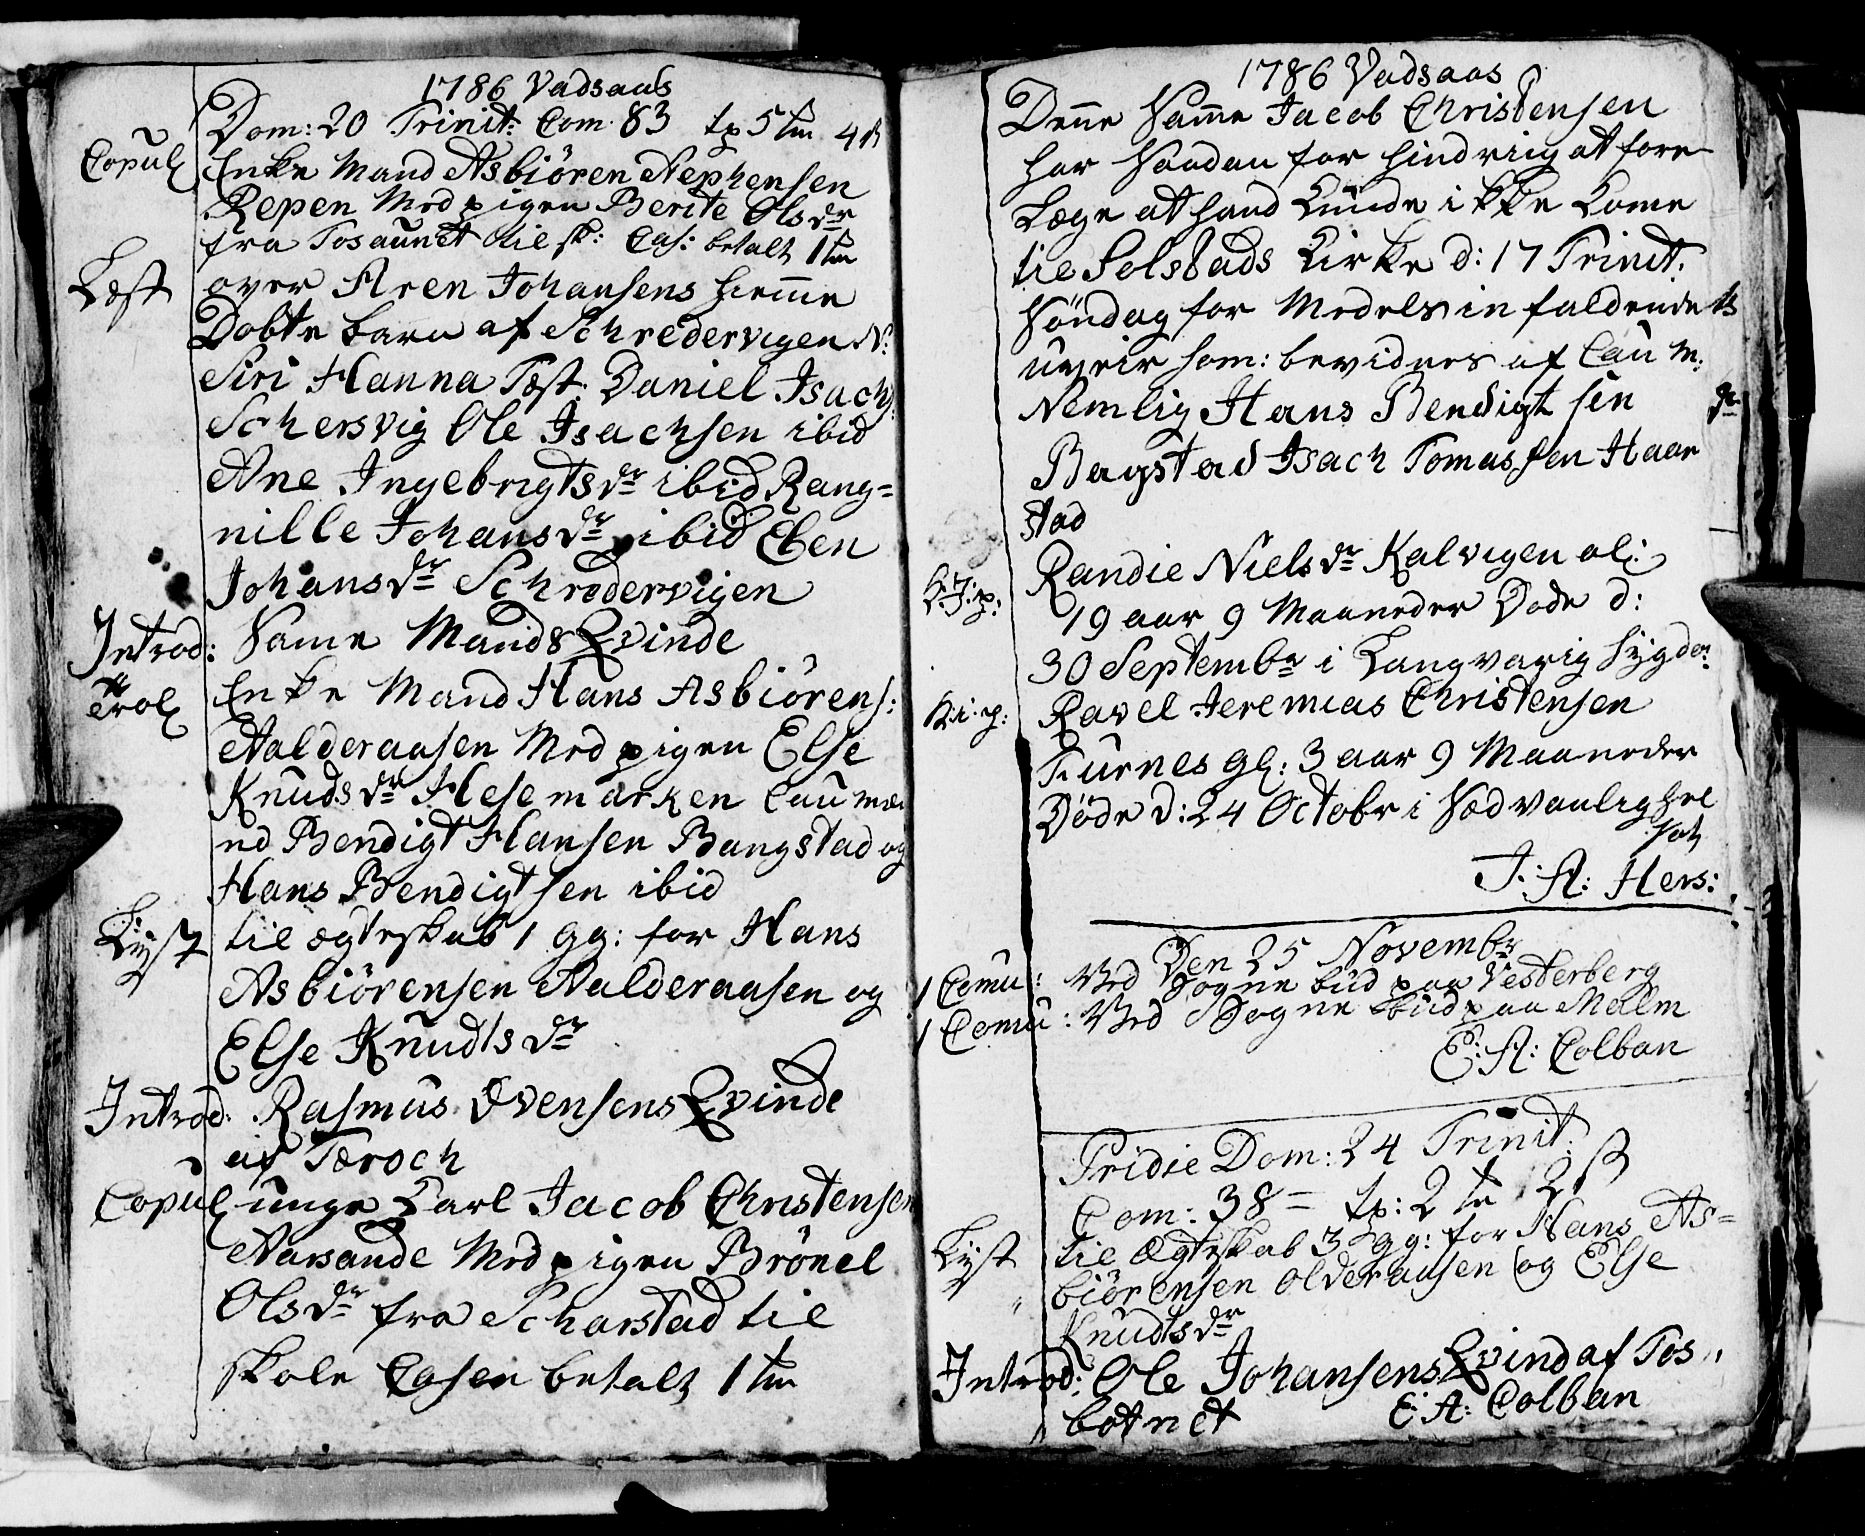 1786 Vadsaas
Dom: 20 Trinit: Com. 83 tp 5 tm 4 ß
Copul Enke Mand Asbiören Nephensen
Repen Med pigen Berite Olsdr
fra Tosaunet til sk: Cas: betalt 1 tm
Læst over Aren Johansens hiemme
Döbte barn af Schredervigen N:
Siri Hanna Test: Daniel Isachs:
Schersvig Ole Isachsen ibid
Ane Ingebrigtsdr ibid Rang=
nille Johansdr ibid Elen
Johansdr Schredervigen
Introd: Same Mands Qvinde
Trol Enke Mand Hans Asbiörens:
Aalderaasen Med pigen Else
Knudsdr Hesemarken Cau mæ
nd Bendigt Hansen Bangstad og
Hans Bendigtsen ibid
Lyst til ægteskab 1 gg: for Hans
Asbiörensen Aalderaasen og
Else Knudtsdr
Introd: Rasmus Evensens Qvinde
af Tæroch
Copul unge Karl Jacob Christensen
Aarsande Med pigen Brönel
Olsdr fra Scharstad til
skole Casen betalt 1 tm
1786 Vadsaas
Denne Samme Jacob Christensen
har Saadan for hindring at fore
Læge at hand Kunde ikke Kome
til Solstads Kirke d: 17 Trinit:
Söndag for Medelst in faldende
uveir som: bevidnes af Cau m:
Nemlig Hans Bendigtsen
Bagstad Isach Tomassen Haar
stad
K: J: p: Randie Nielsdr Kalvigen al:
19 aar 9 Maaneder Döde d:
30 Septembr i Langvarig Sygdom
K: i: p: Ravel Jeremias Christensen
Furnes gl: 3 aar 9 Maaneder
Döde d: 24 Octobr i Sædvanlighed
sot
J: A: Hers:
Den 25 Novembr
1 Comu: Ved Sogne bud paa Vesterberg
1 Comu: Ved Sogne bud paa Malm
E: A: Colban
Pridie Dom: 24 Trinit:
Com: 38 = tp: 2 tm 2 ß
Lyst til Ægteskab 3 gg: for Hans As=
biörensen Olderaasen og Else
Knudtsdr
Introd: Ole Johansens Qvind af Tos
botnet E: A: Colban